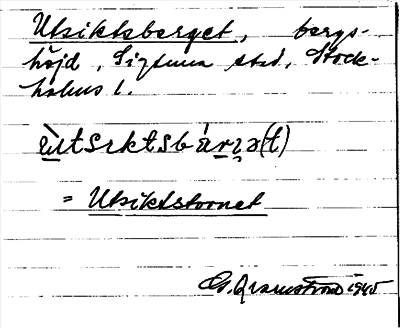 Utsiktsberget, bergs-
höjd, Sigtuna stad, Stock-
holms l.
ùtsıktsbárıə(t)
= Utsiktstornet
G. Qvarnström 1945